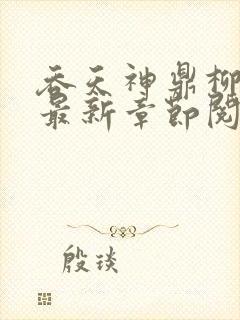 吞天神鼎柳
最新章节阅
殷琰